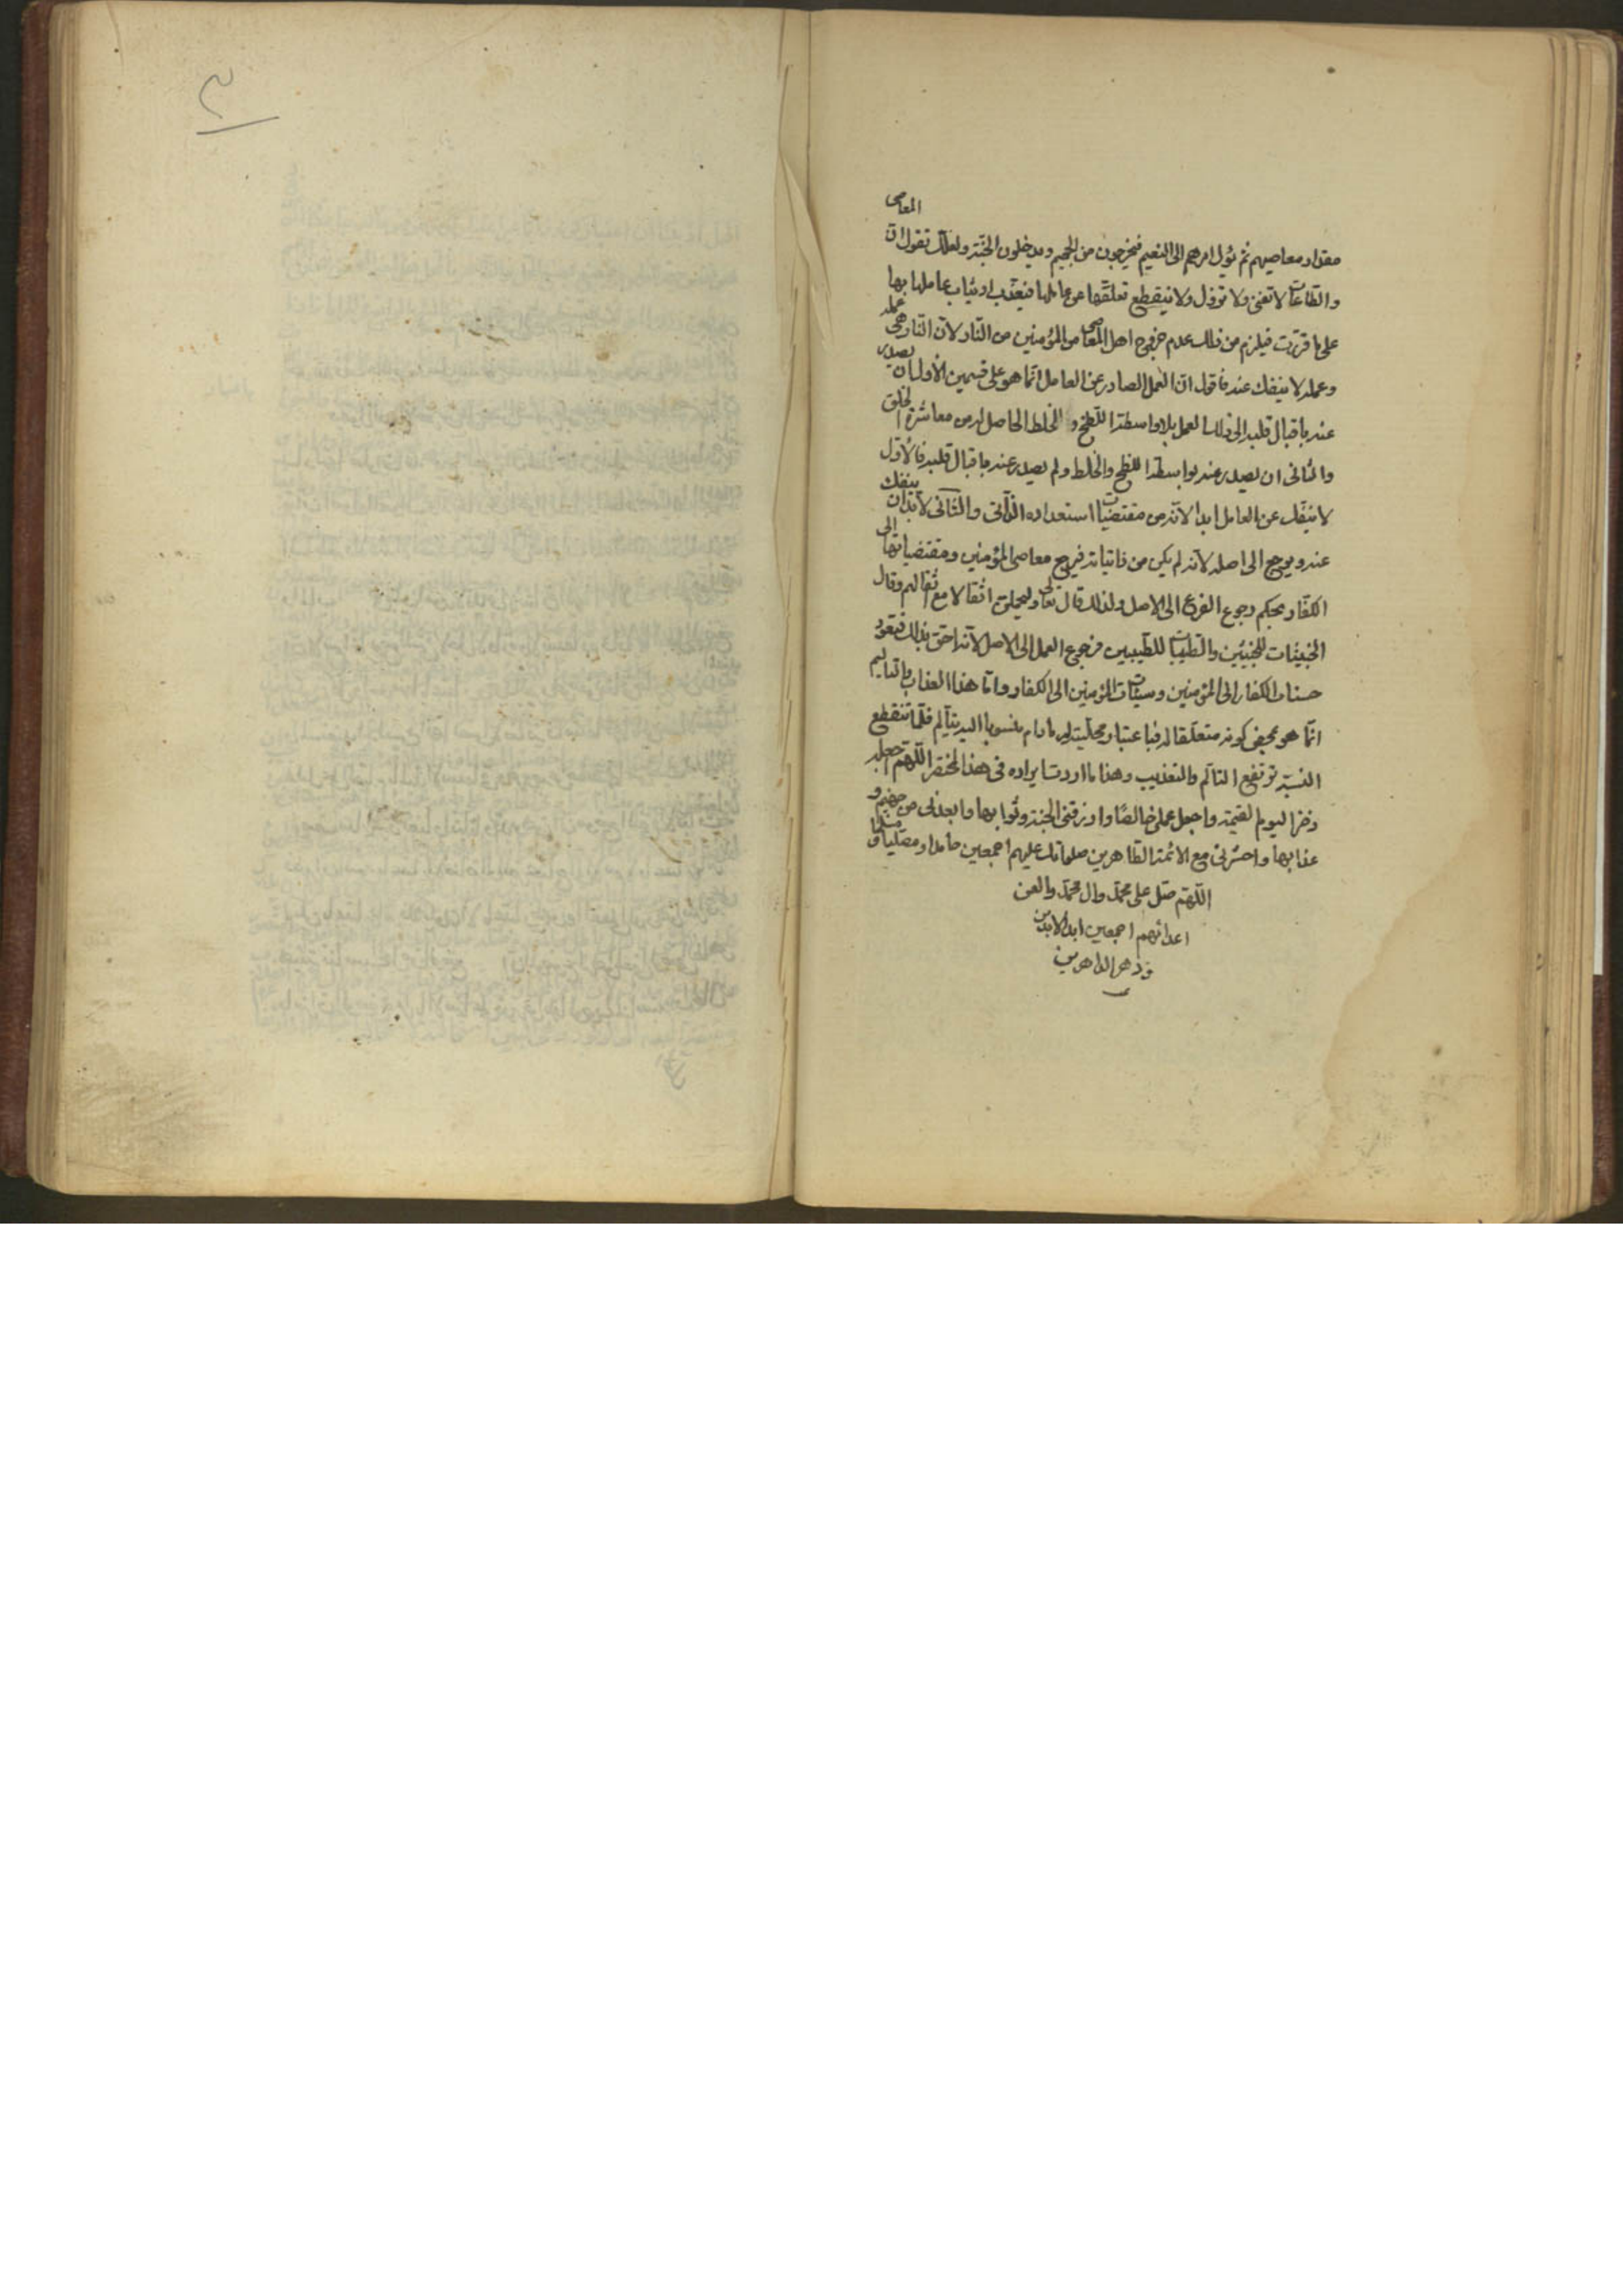 مقدار معاصيهم ثم يؤل امرهم الى النعيم فيخرجون من الجحيم ويدخلون الجنّة ولعلّك تقول انّ المعاصى
والطّاعات لا تفنى ولا تزول ولا ينقطع تعلّقها عن عاملها فيعذّب او يثاب عاملها بها
على ما قررت فيلزم من ذلك عدم خروج اهل المعاصى من المؤمنين من النّار لانّ النّار هى عمله
وعمله لا ينفك عنه فاقول انّ العمل الصادر عن العامل انّما هو على قسمين الاول ان يصدر
عنه باقبال قلبه الى ذلك العمل بلا واسطة اللّطخ و الخلط الحاصل له من معاشرة الخلق
والثانى ان يصدر عنه بواسطة اللطخ والخلط ولم يصدر عنه باقبال قلبه فالاوّل
لا ينفّك عن العامل ابدا لانّه من مقتضيات استعداده الذّاتى والثّانى لابدّ ان ينفك
عنه ويرجع الى اصله لانّه لم يكن من ذاتياته فيرجع معاصى المؤمنين ومقتضياتها الى
الكفّار بحكم رجوع الفرع الى الاصل ولذلك قال تعالى وليحملنّ اثقالا مع اثقالهم وقال
الخبيثات للخبيثين والطّيبات للطّيبين فرجع العمل الى الاصل لانّه احق بذلك فيعود
حسنات الكفار الى المؤمنين وسيئات المؤمنين الى الكفار وامّا هذا العذاب والتاليم
انّما هو بمحض كونه متعلّقا له فباعتبار محليّته له مادام منسوبا اليه يتألم فلمّا تنقطع
النسبة ترتفع التألّم والتعذيب وهذا ما اردت ايراده فى هذا المختصر اللّهم اجعله
ذخرا ليوم القيمة واجعل عملى خالصًا وارزقنى الجنّة وثوابها وابعدنى من جهنم و
عذابها واحشرنى مع الائمة الطّاهرين صلواتك عليهم اجمعين حامدا ومصلّيا و مسلّما
اللّهمّ صلّ على محمّد وال محمّد والعن
اعدائهم اجمعين ابد الابدين
و دهر الداهرين